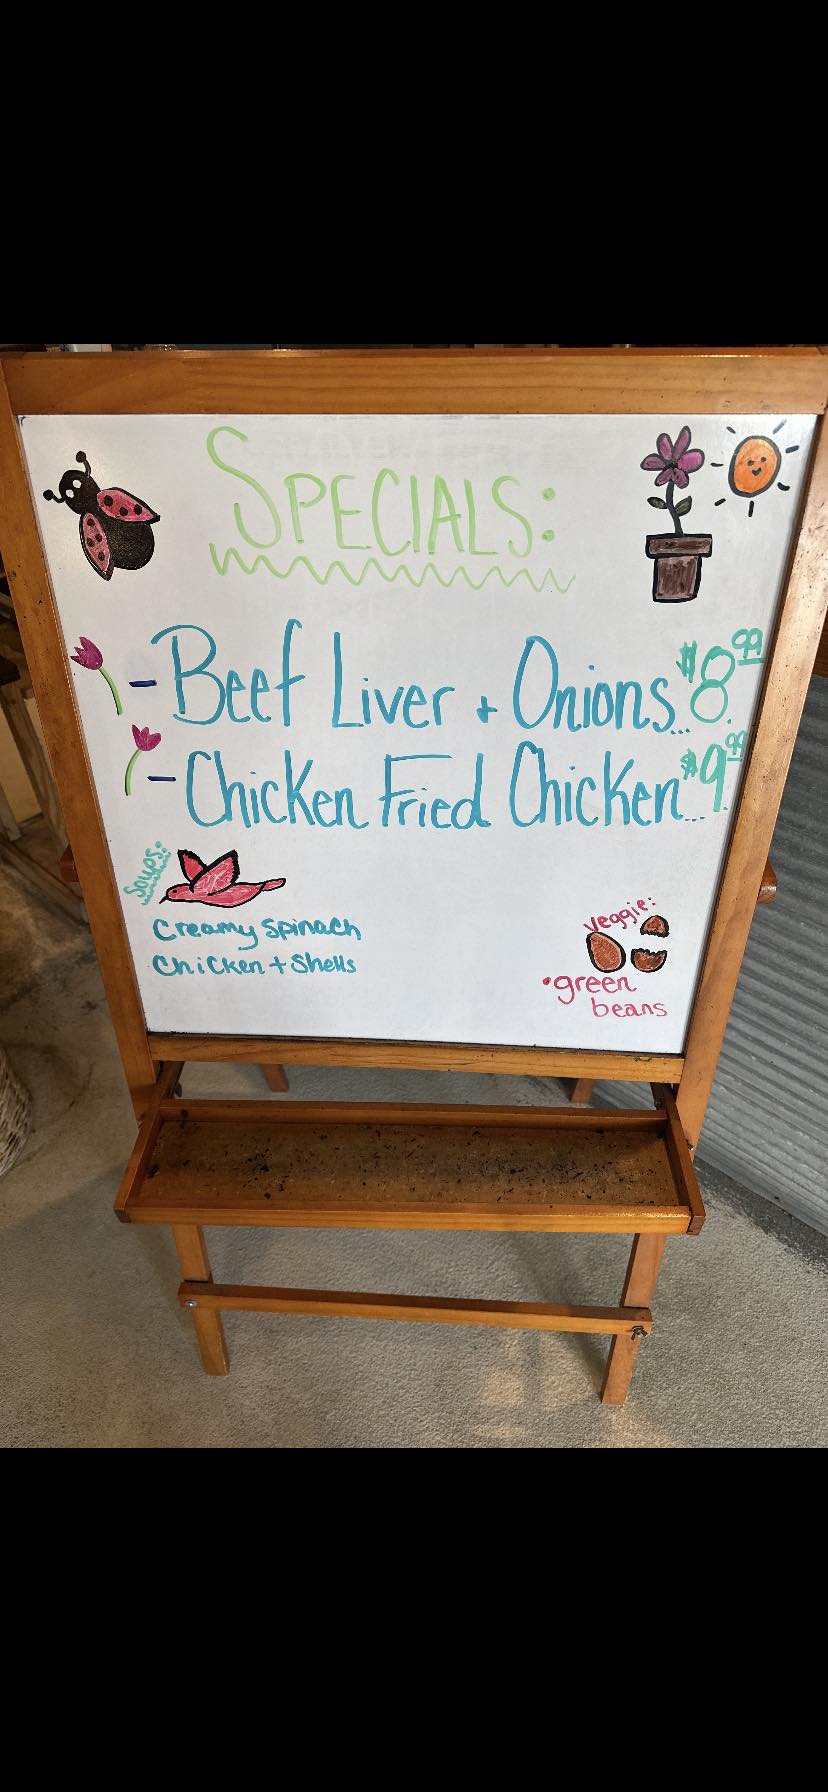 SPECIALS:
- Beef Liver + Onions... $8.99
- Chicken Fried Chicken... $9.99
Soups:
Creamy Spinach
Chicken + Shells
veggie:
•green
beans